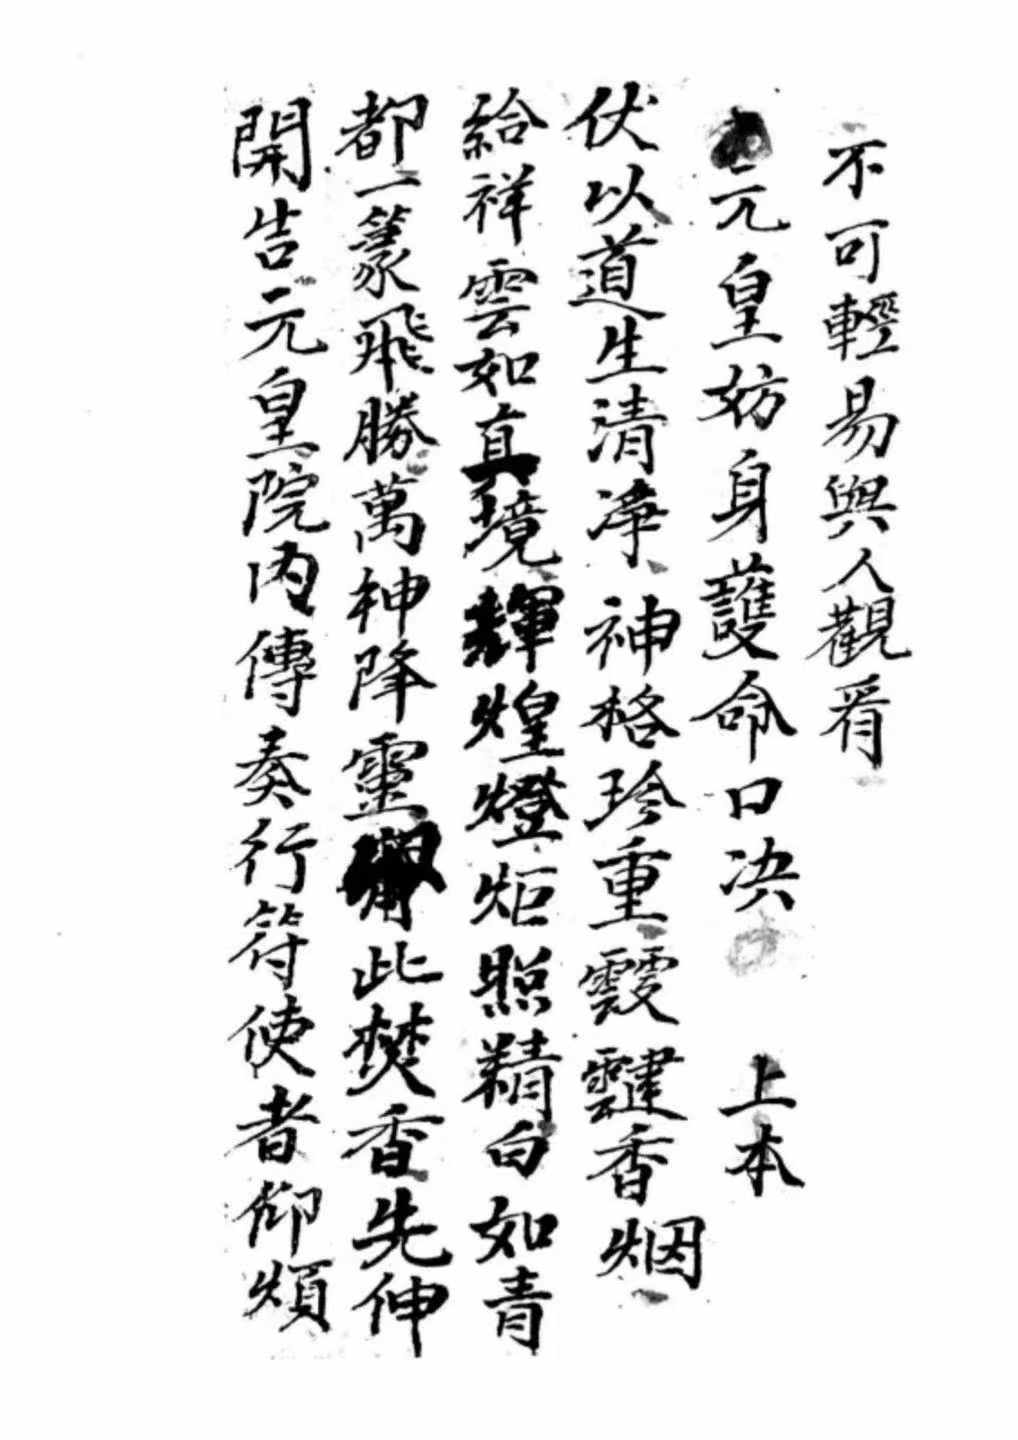 不可輕易與人觀看
元皇妨身護命口决 上本
伏以道生清凈神格珍重靉靆香烟
給祥雲如真境輝煌燈炬照精白如青
都一篆飛勝萬神降靈此焚香先伸
開告元皇院内傳奏行符使者仰煩